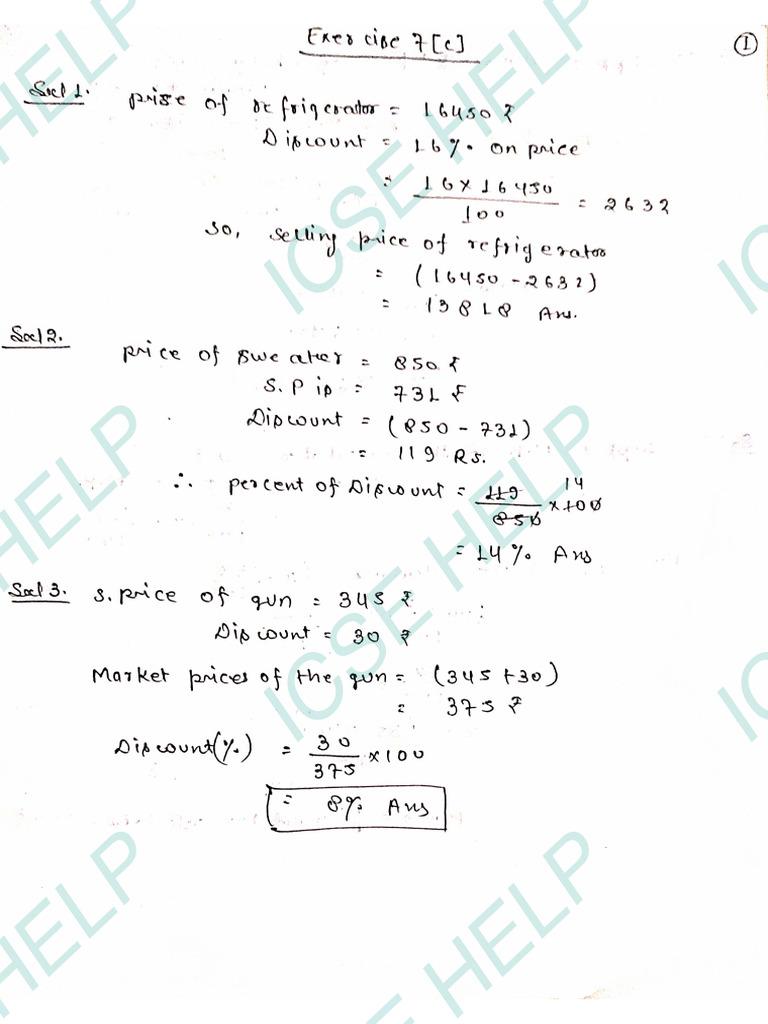 Exercise 7[c]
1
Sol 1. price of refrigerator = 16450 ₹
Discount = 16% on price
= 16 × 16450 / 100 = 2632
so, selling price of refrigerator
= (16450 - 2632)
= 13818 Ans.
Sol 2.
price of sweater = 850 ₹
S.P is = 731 ₹
Discount = (850 - 731)
= 119 Rs.
∴ percent of Discount = 119 / 850 × 100 14
= 14% Ans
Sol 3. S. price of gun = 345 ₹
Discount = 30 ₹
Market prices of the gun = (345 + 30)
= 375 ₹
Discount(%) = 30 / 375 × 100
= 8% Ans
ICSE HELP